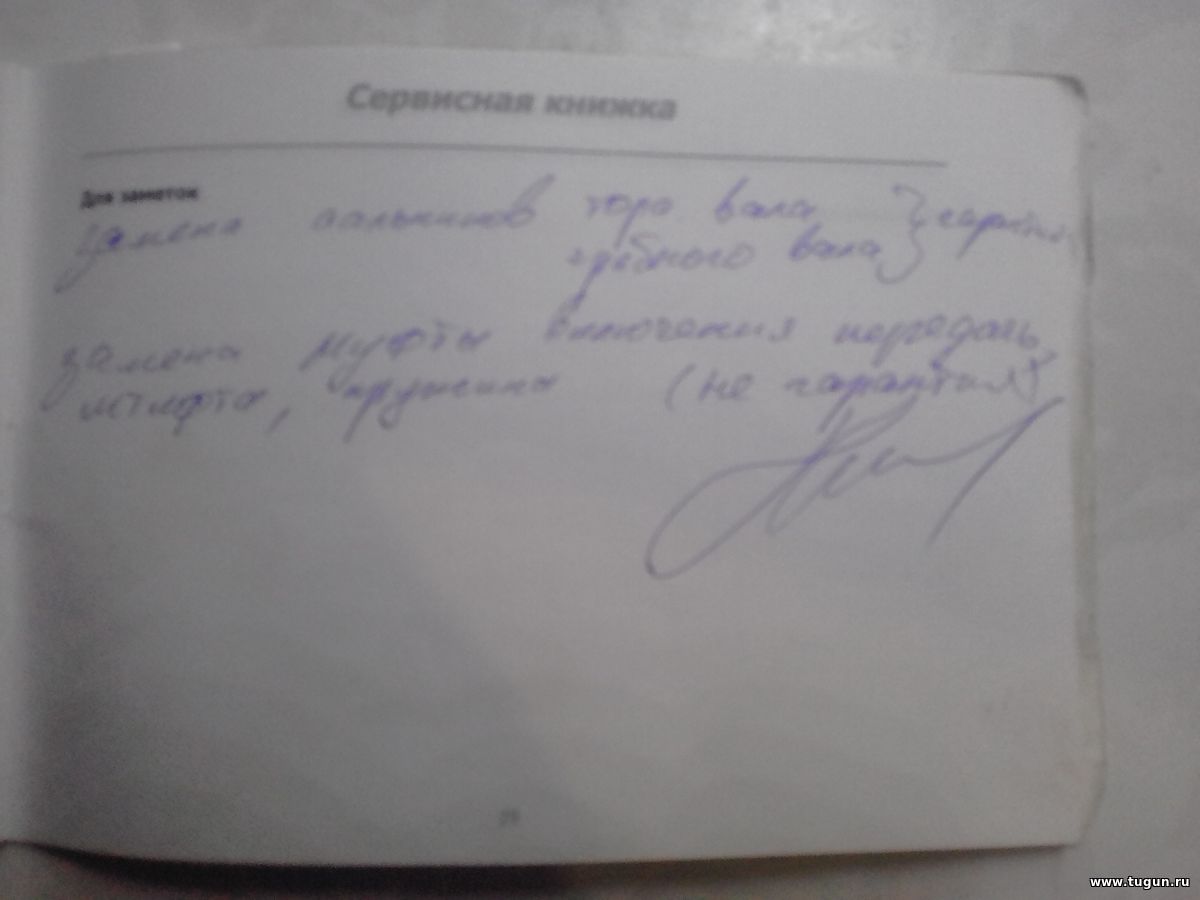 Сервисная книжка
Для заметок
замена сальников торс вала } гарантия
гребного вала
замена муфты включения передачь,
штифта, пружина (не гарантия)
www.tugun.ru